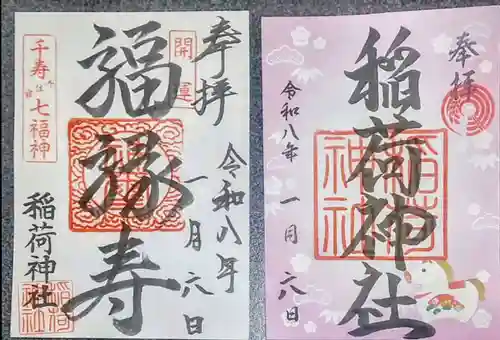 奉拝
開運
福縁寿
千寿
七福神
令和八年
一月六日
稲荷神社
稲荷
神社
奉拝
稲荷神社
稲荷
神社
令和八年
一月六日